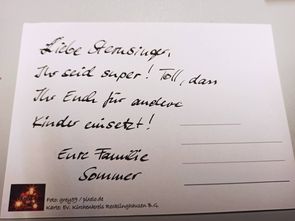 Liebe Sternsinger,
Ihr seid super! Toll, dass
Ihr Euch für andere
Kinder einsetzt!
Eure Familie
Sommer
Foto: grey59 / pixelio.de
Karte: Ev. Kirchenkreis Recklinghausen B.G.